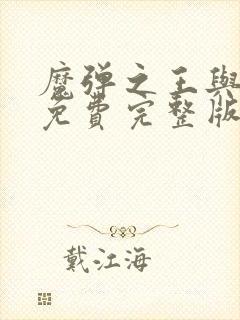 魔弹之王與
免費完整版
戴江海